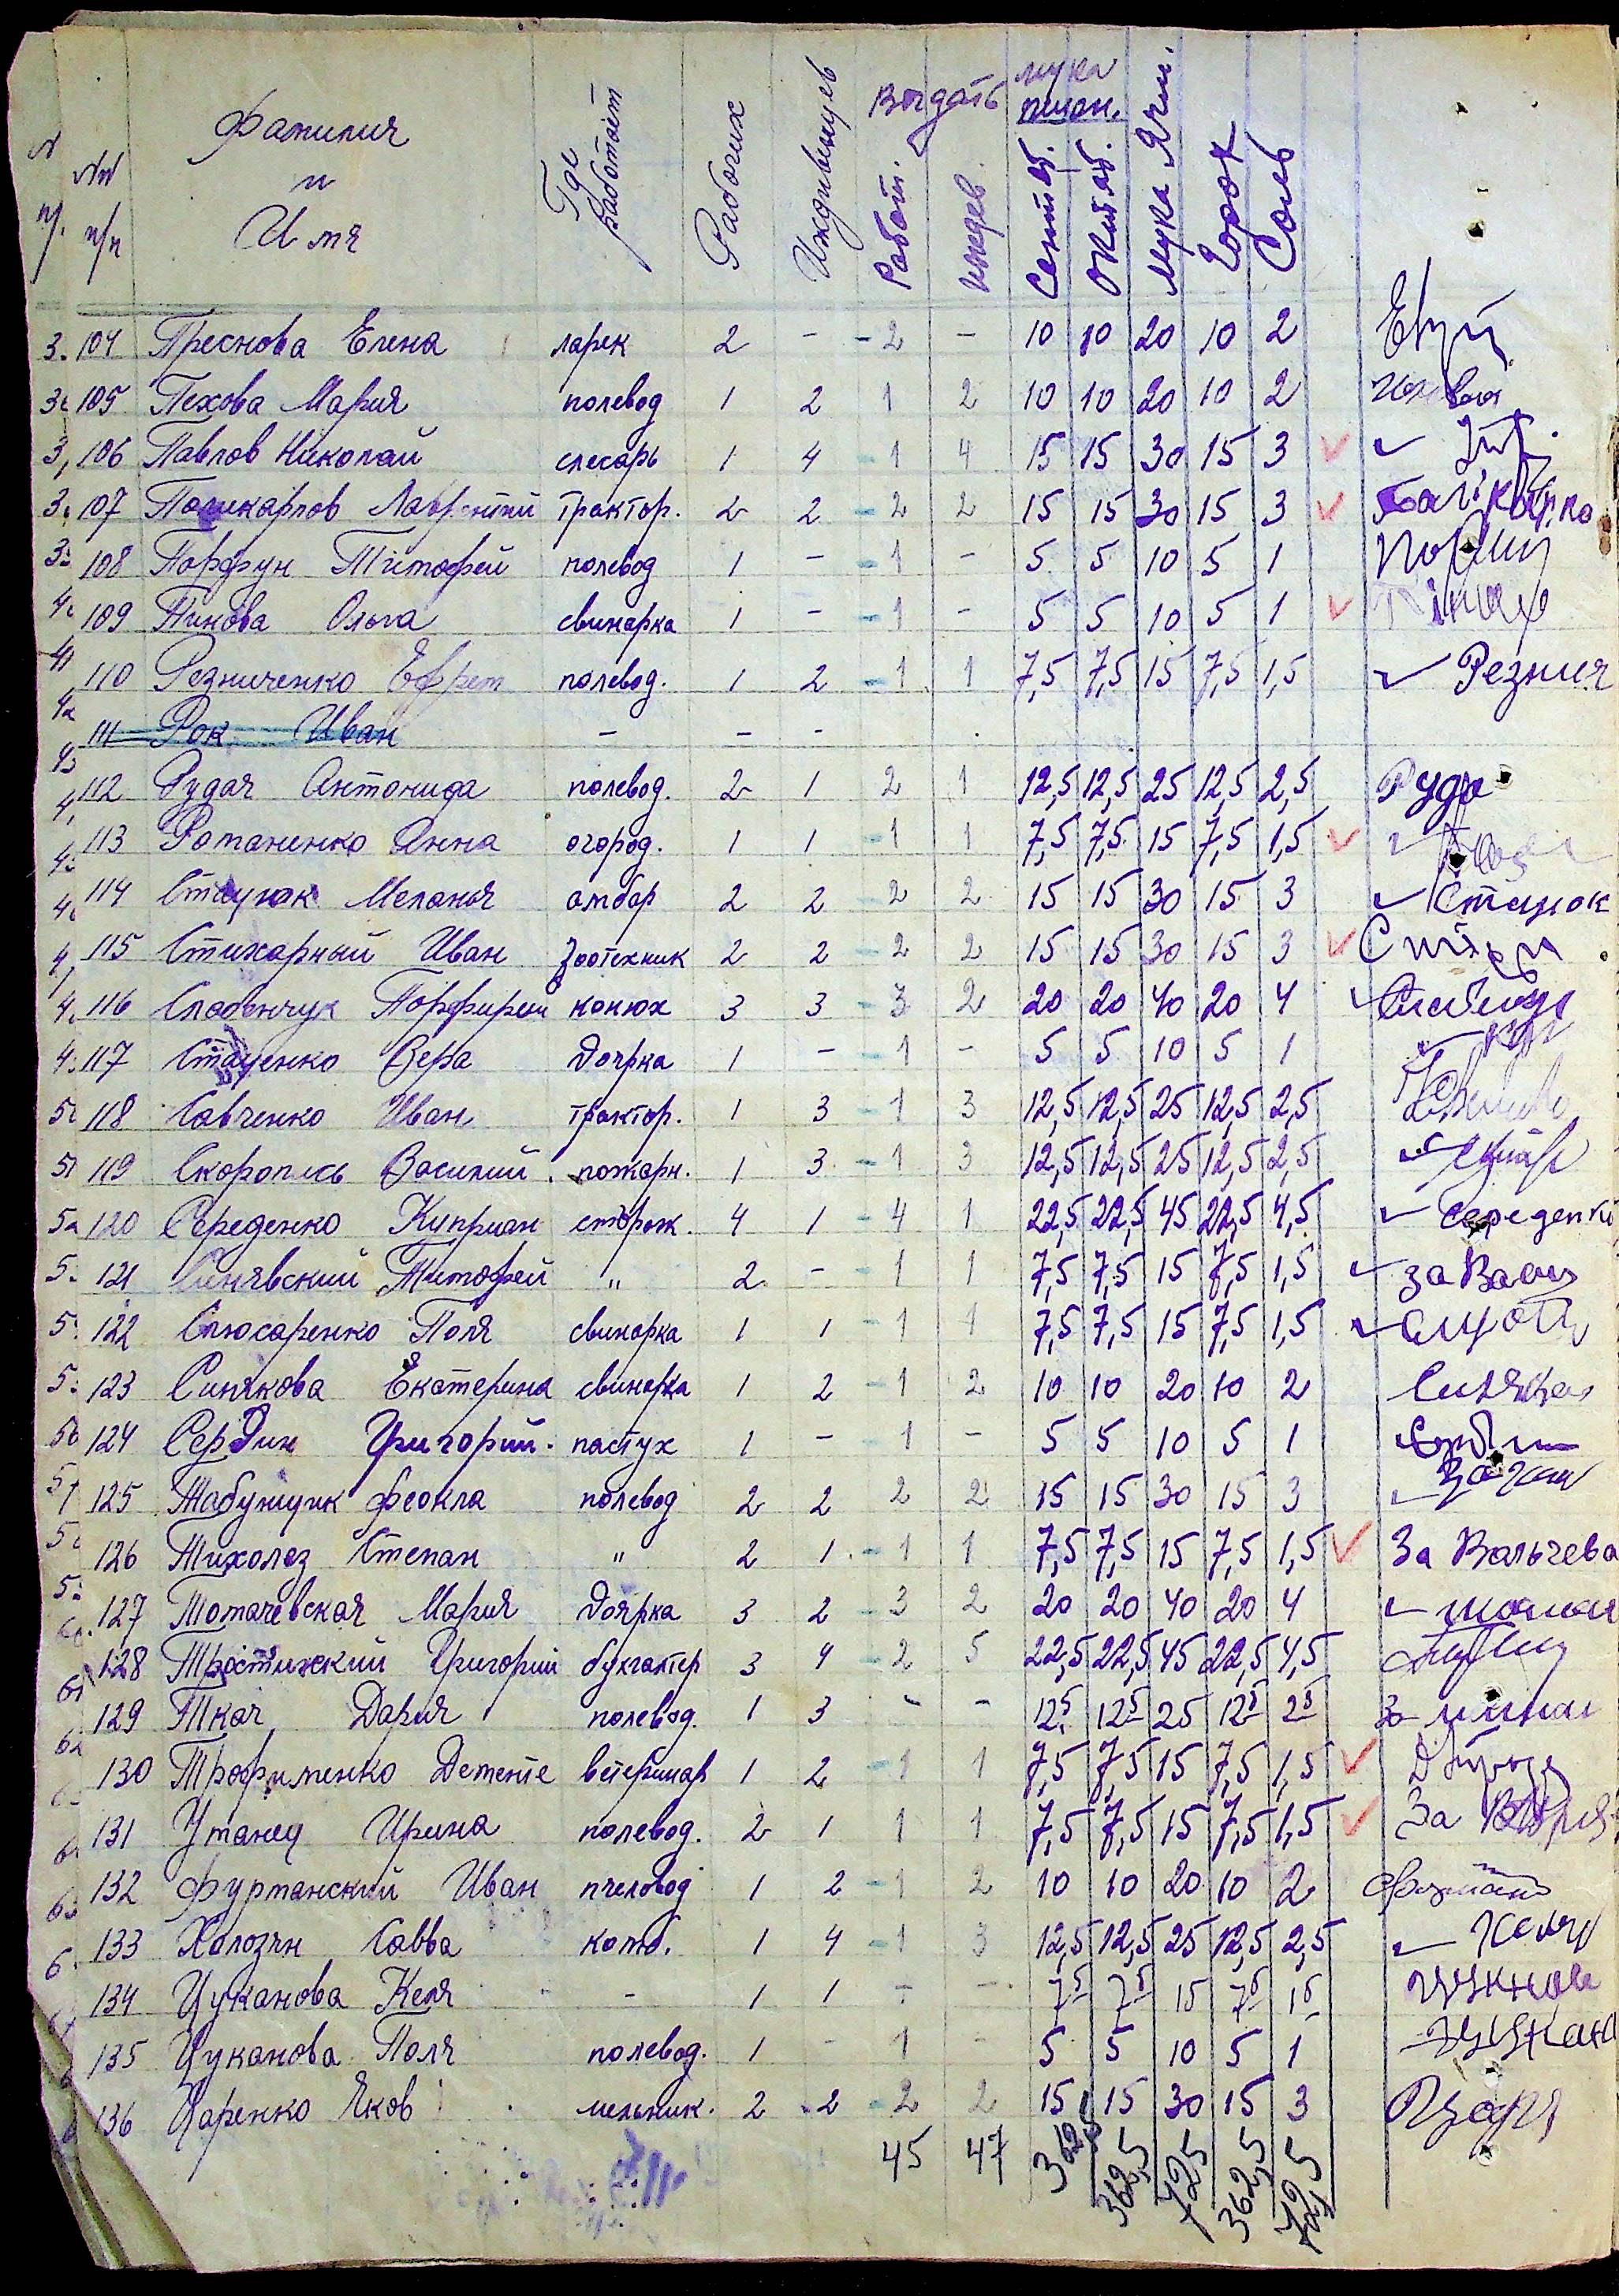 Выдать мука
пшен.
№ п/. №№ п/п Фамилия и Имя Где работает Рабочих Иждивенцев Работ. иждев. Сентяб. Октяб. Мука Ячм. Горох Соль
104 Преснова Елена ларек 2 - 2 - 10 10 20 10 2
105 Пехова Мария полевод 1 2 1 2 10 10 20 10 2
106 Павлов Николай слесарь 1 4 1 4 15 15 30 15 3
107 Поликарпов Лаврентий трактор. 2 2 2 2 15 15 30 15 3
108 Порфун Тимофей полевод 1 - 1 - 5 5 10 5 1
109 Пинова Ольга свинарка 1 - 1 - 5 5 10 5 1
110 Резниченко Ефрем полевод. 1 2 1 1 7,5 7,5 15 7,5 1,5 Резнич
111 Рок Иван - - -
112 Рудая Антонида полевод. 2 1 2 1 12,5 12,5 25 12,5 2,5 Руда
113 Романенко Анна огород. 1 1 1 1 7,5 7,5 15 7,5 1,5
114 Стацюк Меланья амбар 2 2 2 2 15 15 30 15 3 Стацюк
115 Стихарный Иван Зоотехник 2 2 2 2 15 15 30 15 3
116 Слабенчук Порфирий конюх 3 3 3 2 20 20 40 20 4
117 Стаценко Вера доярка 1 - 1 - 5 5 10 5 1
118 Савченко Иван трактор. 1 3 1 3 12,5 12,5 25 12,5 2,5
119 Скоропись Василий пожарн. 1 3 1 3 12,5 12,5 25 12,5 2,5
120 Середенко Куприан сторож. 4 1 4 1 22,5 22,5 45 22,5 4,5 Середенко
121 Синявский Тимофей " 2 - 1 1 7,5 7,5 15 7,5 1,5 за
122 Слюсаренко Поля свинарка 1 1 1 1 7,5 7,5 15 7,5 1,5
123 Синякова Екатерина свинарка 1 2 1 2 10 10 20 10 2
124 Сердин Григорий. пастух 1 - 1 - 5 5 10 5 1
125 Табунщик Феокла полевод 2 2 2 2 15 15 30 15 3
126 Тихолаз Степан " 2 1 1 1 7,5 7,5 15 7,5 1,5 За Вальчева
127 Томачевская Мария доярка 3 2 3 2 20 20 40 20 4
128 Тростинский Григорий бухгалтер 3 4 2 5 22,5 22,5 45 22,5 4,5
129 Ткач Дария полевод. 1 3 - - 12⁵ 12⁵ 25 12⁵ 2⁵ За
130 Трофименко Дементе ветеринар 1 2 1 1 7,5 7,5 15 7,5 1,5
131 Уманец Ирина полевод. 2 1 1 1 7,5 7,5 15 7,5 1,5 За
132 Фурманский Иван пчеловод 1 2 1 2 10 10 20 10 2
133 Халозян Савва комб. 1 4 1 3 12,5 12,5 25 12,5 2,5
134 Цуканова Келя - 1 1 - - 7⁵ 7⁵ 15 7⁵ 1⁵
135 Цуканова Поля полевод. 1 - 1 - 5 5 10 5 1
136 Царенко Яков мельник. 2 2 2 2 15 15 30 15 3
45 47 362,5 362,5 725 362,5 72,5